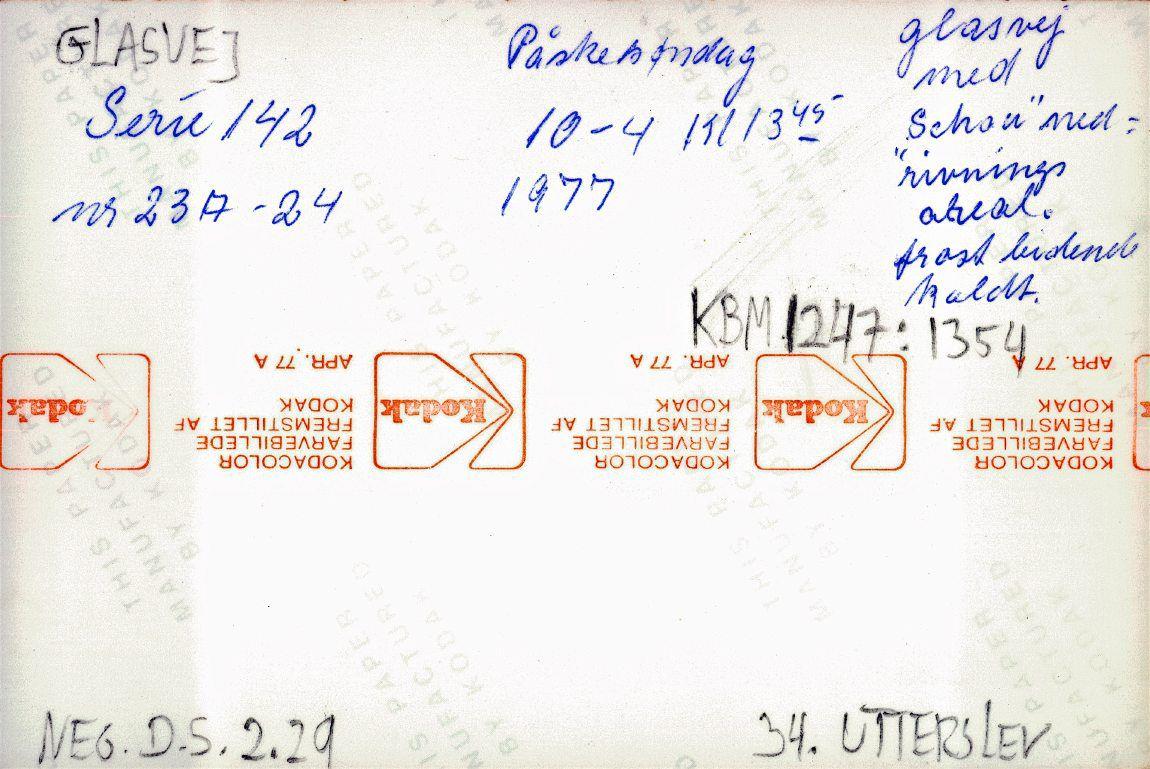 GLASVEJ
Serie 142
nr 237-24
Påskesøndag
10-4 Kl 13⁴⁵
1977
glasvej
med
Schou" ned=
"rivnings
areal.
frost bidende
koldt.
KBM 1247:1354
APR. 77 A
APR. 77 A
APR. 77 A
Kodak
KODACOLOR
FARVEBILLEDE
FREMSTILLET AF
KODAK
Kodak
KODACOLOR
FARVEBILLEDE
FREMSTILLET AF
KODAK
Kodak
KODACOLOR
FARVEBILLEDE
FREMSTILLET AF
KODAK
THIS PAPER
MANUFACTURED
BY KODAK
NEG. D.S. 2.29
34. UTTERSLEV